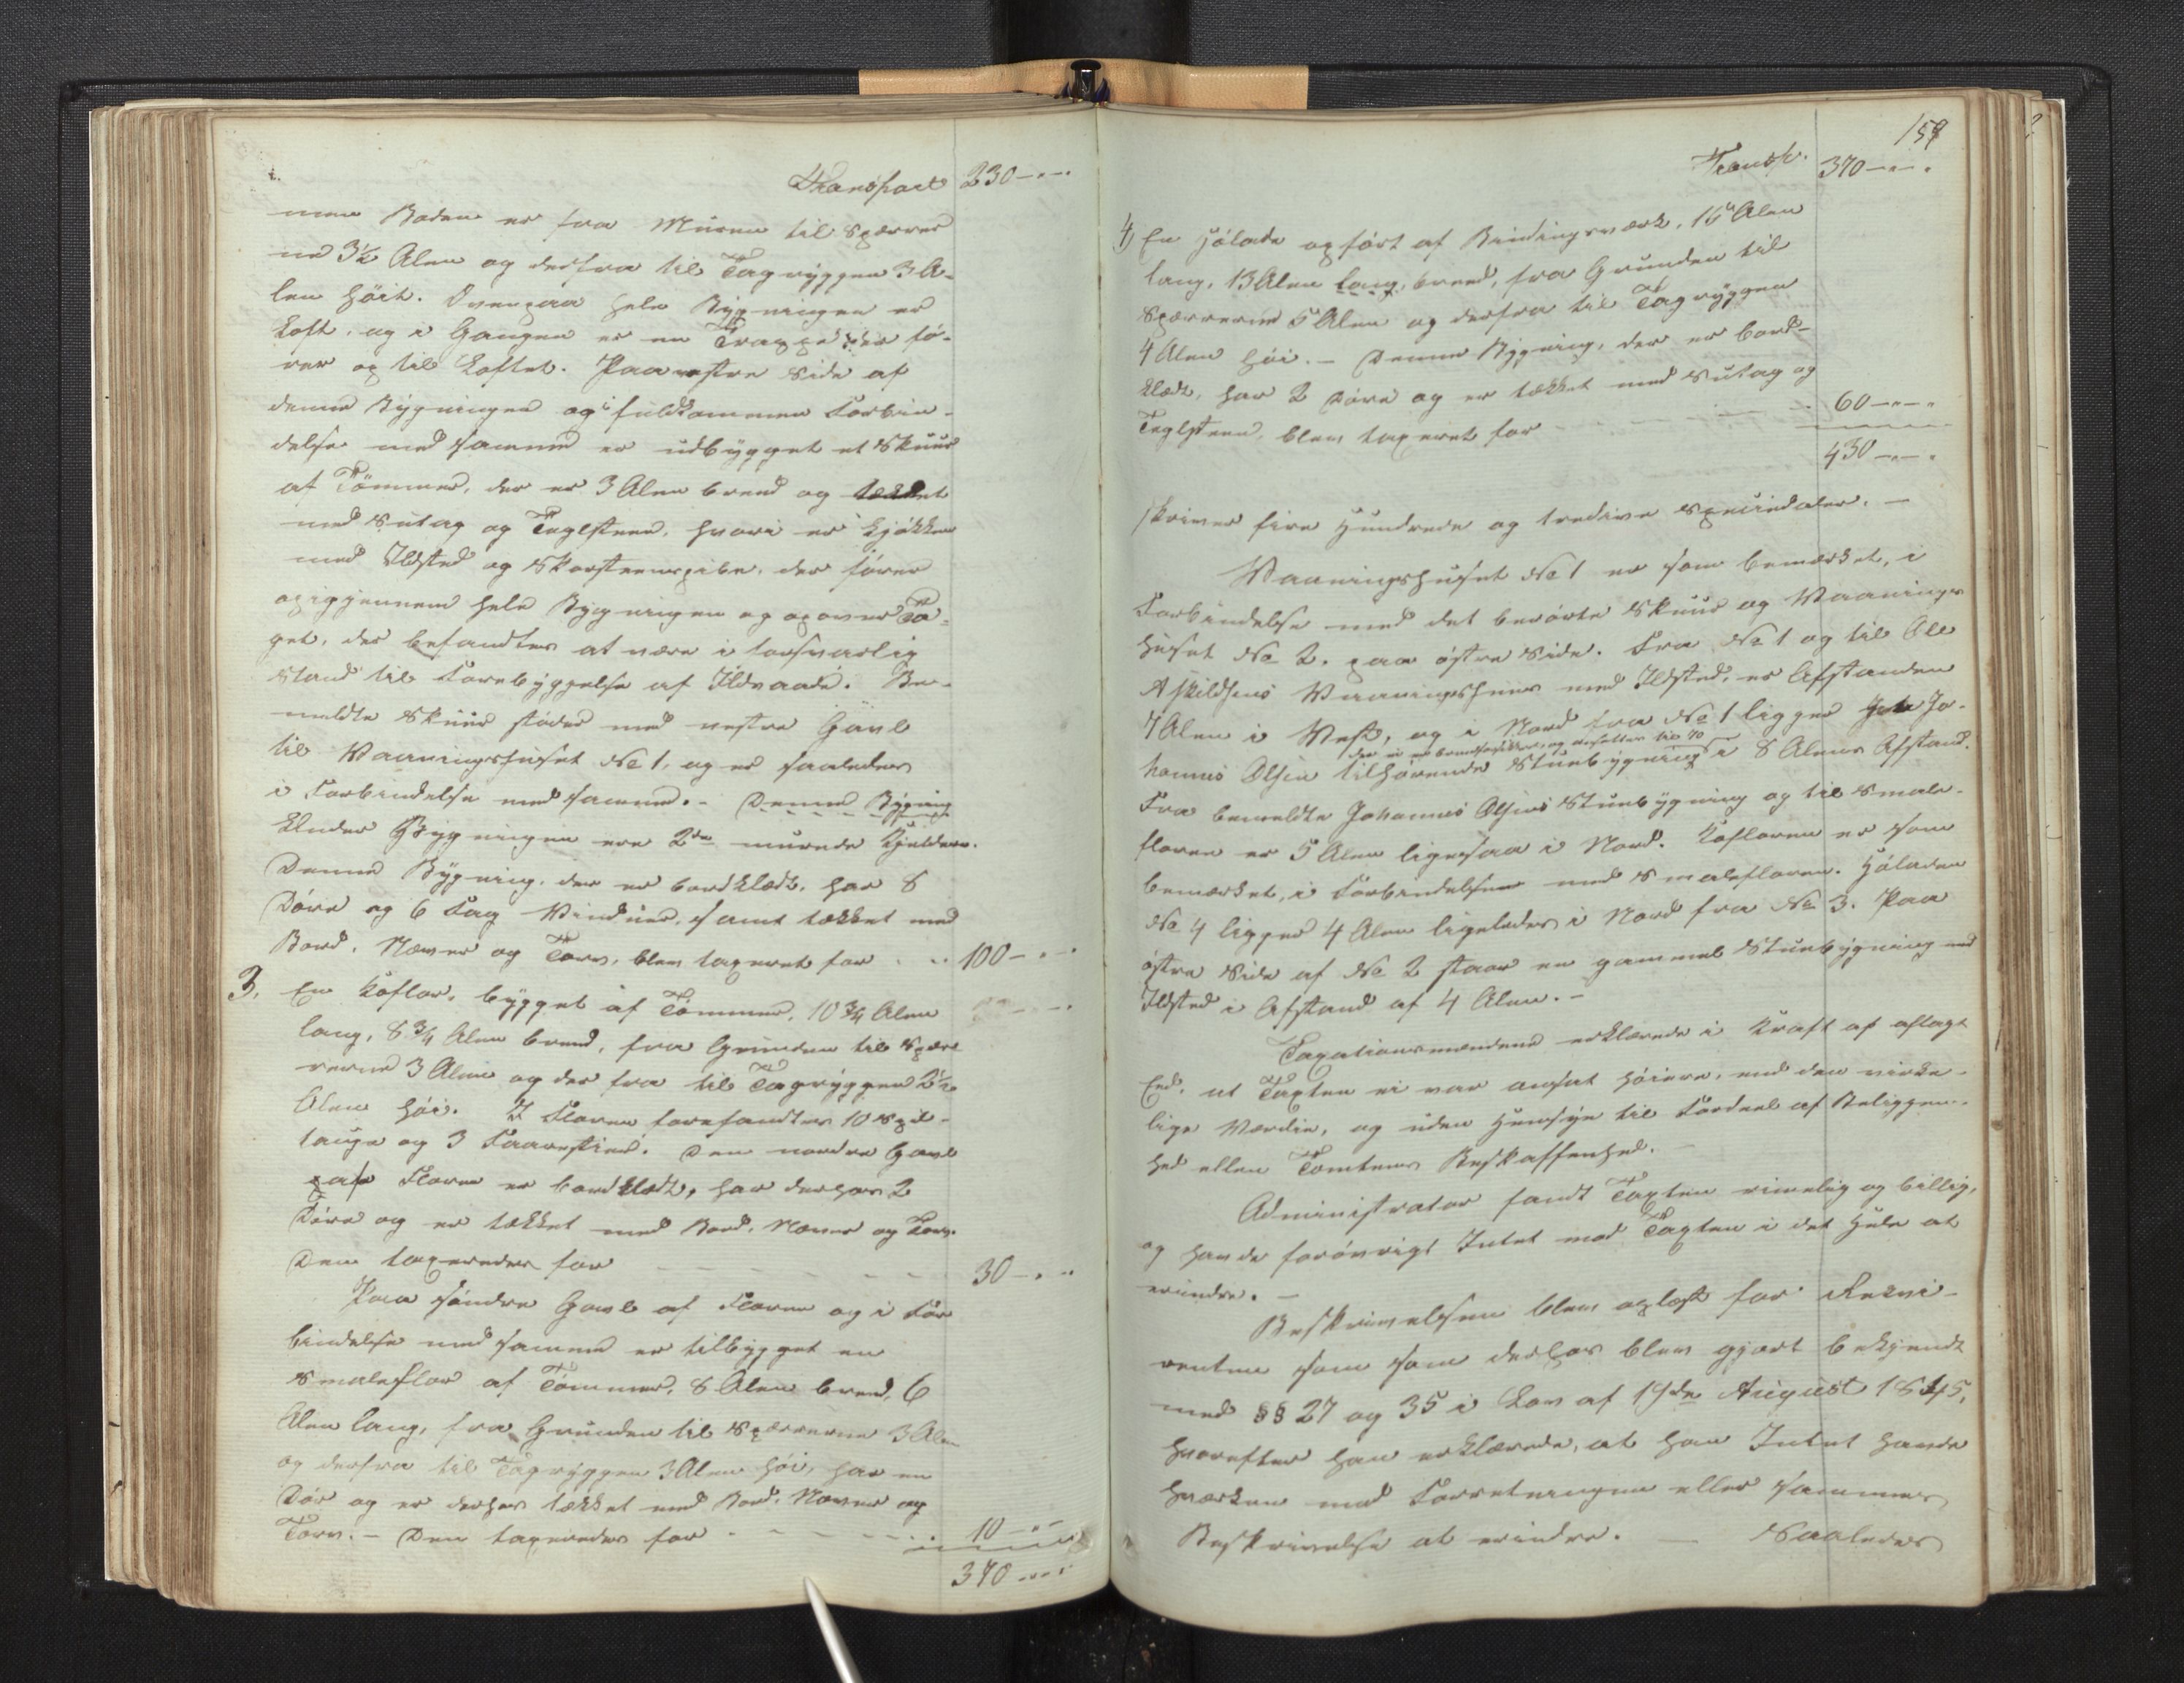 Transport 230-"-"
men Boden er fra Muren til Spærrer
ne 3½ Alen og derfra til Tagryggen 3 A-
len høit. Ovenpaa hele Bygningen er
Loft, og i Gangen er en Trappe der fø-
rer op til Loftet. Paa vestre Side af
denne Bygningen og i fuldkommen Forbin-
delse med samme er udbygget et Skuur
af Tømmer, der er 3 Alen breed og tækket
med Sutag og Teglsteen, hvori er Kjøkken
med Ildsted og Skorsteenspibe, der fører
op igjennem hele Bygningen og op over Ta-
get, der befandtes at være i forsvarlig
Stand til Forebyggelse af Ildvaade. Be-
meldte Skuur støder med vestre Gavl
til Vaaningshuset No 1, og er saaledes
i Forbindelse med samme. - Denne Bygning
Under Bygningen ere 2de murede Kjeldere.
Denne Bygning, der er bordklædt, har 8
Døre og 6 Fag Vinduer, samt tækket med
Bord, Næver og Torv, blev taxeret for 100-"-"
3. En Koflor, bygget af Tømmer, 10¾ Alen
lang, 8¾ Alen breed, fra Grunden til Spær
rerne 3 Alen og der fra til Tagryggen 2½
Alen høi. I Floren forefandtes 10 Spil-
touge og 3 Faarestier. Den nordre Gavl
paa Floren er bordklædt, har derhos 2
Døre og er tækket med Bord, Næver og Torv.
Den taxeredes for 30-"-"
Paa søndre Gavl af Floren og i For
bindelse med samme er tilbygget en
Smaleflor af Tømmer, 8 Alen breed, 6
Alen lang, fra Grunden til Spærrerne 3 Alen
og derfra til Tagryggen 3 Alen høi, har en
Dør og er derhos tækket med Bord, Næver og
Torv. - Den taxeredes for 10-"-"
370-"-"
159
Transp. 370-"-"
4, En Høladе opført af Bindingsværk, 16 Alen
lang, 13 Alen lang, breed, fra Grunden til
Spærrerne 5 Alen og derfra til Tagryggen
4 Alen høi. - Denne Bygning, der er bord-
klædt, har 2 Døre og er tækket med Sutag og
Teglsteen, blev taxeret for 60-"-"
430-"-"
skriver fire Hundrede og tredive Speciedaler. -
Vaaningshuset No 1 er som bemærket, i
Forbindelse med det berørte Skuur og Vaanings
huset No 2. paa østre Side. Fra No 1 og til Ole
Askildsens Vaaningshuus med Ildsted, er Afstanden
7 Alen i Vest, og i Nord fra No 1 ligger Jo-
der er brandforsikkret og ansættes til 70
hannes Olsen tilhørende Stuebygning i 8 Alens Afstand.
Fra bemeldte Johannes Olsens Stuebygning og til Smale-
floren er 5 Alen ligesaa i Nord. Kofloren er som
bemærket, i Forbindelse med Smalefloren. Høladen
No 4 ligger 4 Alen ligeledes i Nord fra No 3. Paa
østre Side af No 2 staar en gammel Stuebygning med
Ildsted i Afstand af 4 Alen. -
Taxationsmændene erklærede i Kraft af aflagt
Eed, at Taxten ei var ansat høiere, end den virke-
lige Værdie, og uden Hensyn til Fordeel af Beliggen-
hed eller Tomtens Beskaffenhed.
Administrator fandt Taxten rimelig og billig,
og havde forøvrigt Intet mod Taxten i det Hele at
erindre. -
Beskrivelsen blev oplæst for Reqvi-
renten som som derhos blev gjort bekjendt
med §§ 27 og 35 i Lov af 19de August 1845,
hvorefter han erklærede, at han Intet havde
hverken mod Forretningen eller sammes
Beskrivelse at erindre. - Saaledes